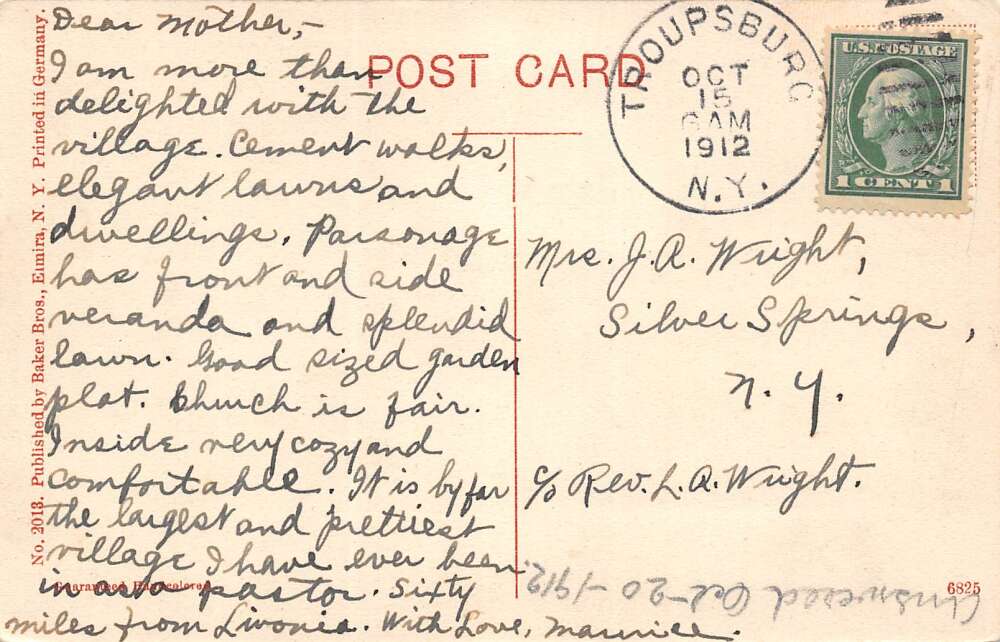 Dear Mother,-
I am more than
delighted with the
village. Cement walks,
elegant lawns and
dwellings. Parsonage
has front and side
veranda and splendid
lawn. Good sized garden
plat. Church is fair.
Inside very cozy and
comfortable. It is by far
the largest and prettiest
village I have ever been
in as a pastor. Sixty
miles from Livonia. With Love, Maurice.
POST CARD
TROUPSBURG
OCT
15
6 AM
1912
N.Y.
U.S. POSTAGE
1 CENT 1
Mrs. J. A. Wright,
Silver Springs,
N. Y.
c/o Rev. L. A. Wright.
Answered Oct-20-1912.
No. 2013. Published by Baker Bros., Elmira, N. Y. Printed in Germany.
Guaranteed Handcolored
6825